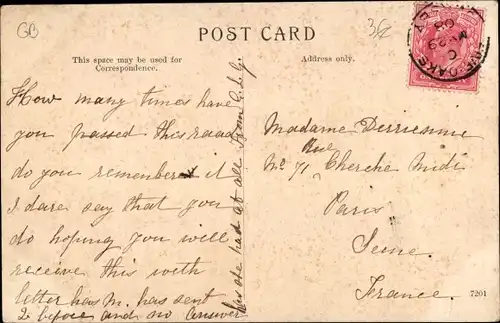 GB
POST CARD
This space may be used for
Correspondence.
Address only.
How many times have
you passed this road
do you remember it
I dare say that you
do hoping you will
receive this with
letter has M. has sent
2 before and no answer
has she had at all from
Madame Derrienne
No 71 Rue Cherche Midi
Paris
Seine.
France.
7201